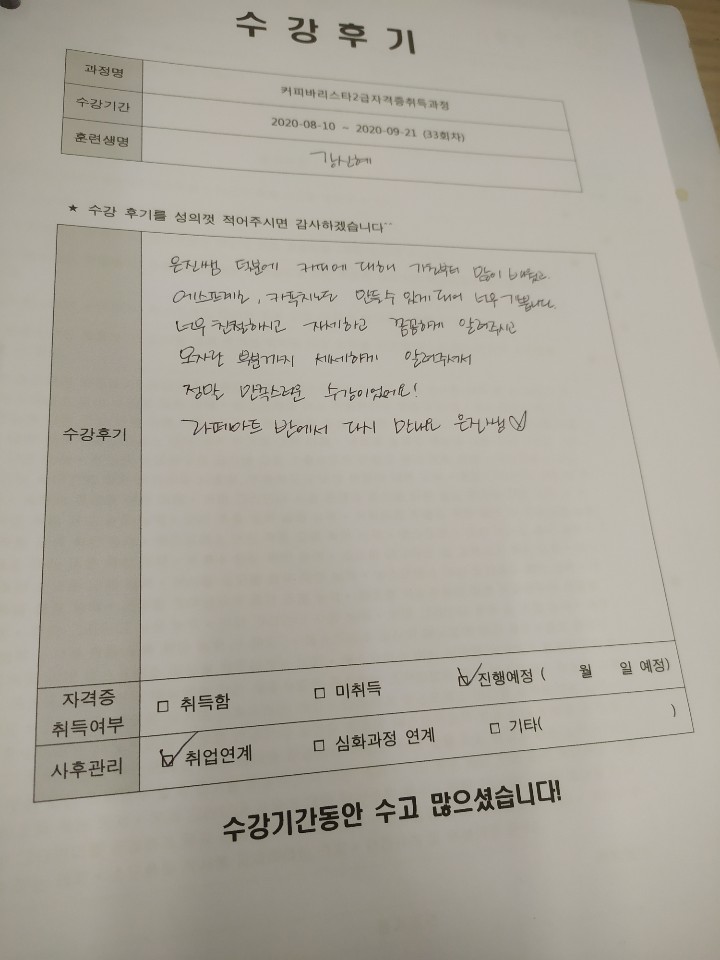 수강후기
과정명 커피바리스타2급자격증취득과정
수강기간 2020-08-10 ~ 2020-09-21 (33회차)
훈련생명
★ 수강 후기를 성의껏 적어주시면 감사하겠습니다^^
은진쌤 덕분에 커피에 대해 기본부터 많이 배웠고
에스프레소, 카푸치노도 만들수 있게 되어 너무 기쁩니다.
너무 친절하시고 자세하고 꼼꼼하게 알려주시고
모자란 부분까지 세세하게 알려주셔서
정말 만족스러운 수강이었어요!
수강후기
라떼아트 반에서 다시 만나요 은진쌤♡
자격증 취득여부 □ 취득함 □ 미취득 ☑ 진행예정 ( 월 일 예정)
사후관리 ☑ 취업연계 □ 심화과정 연계 □ 기타( )
수강기간동안 수고 많으셨습니다!